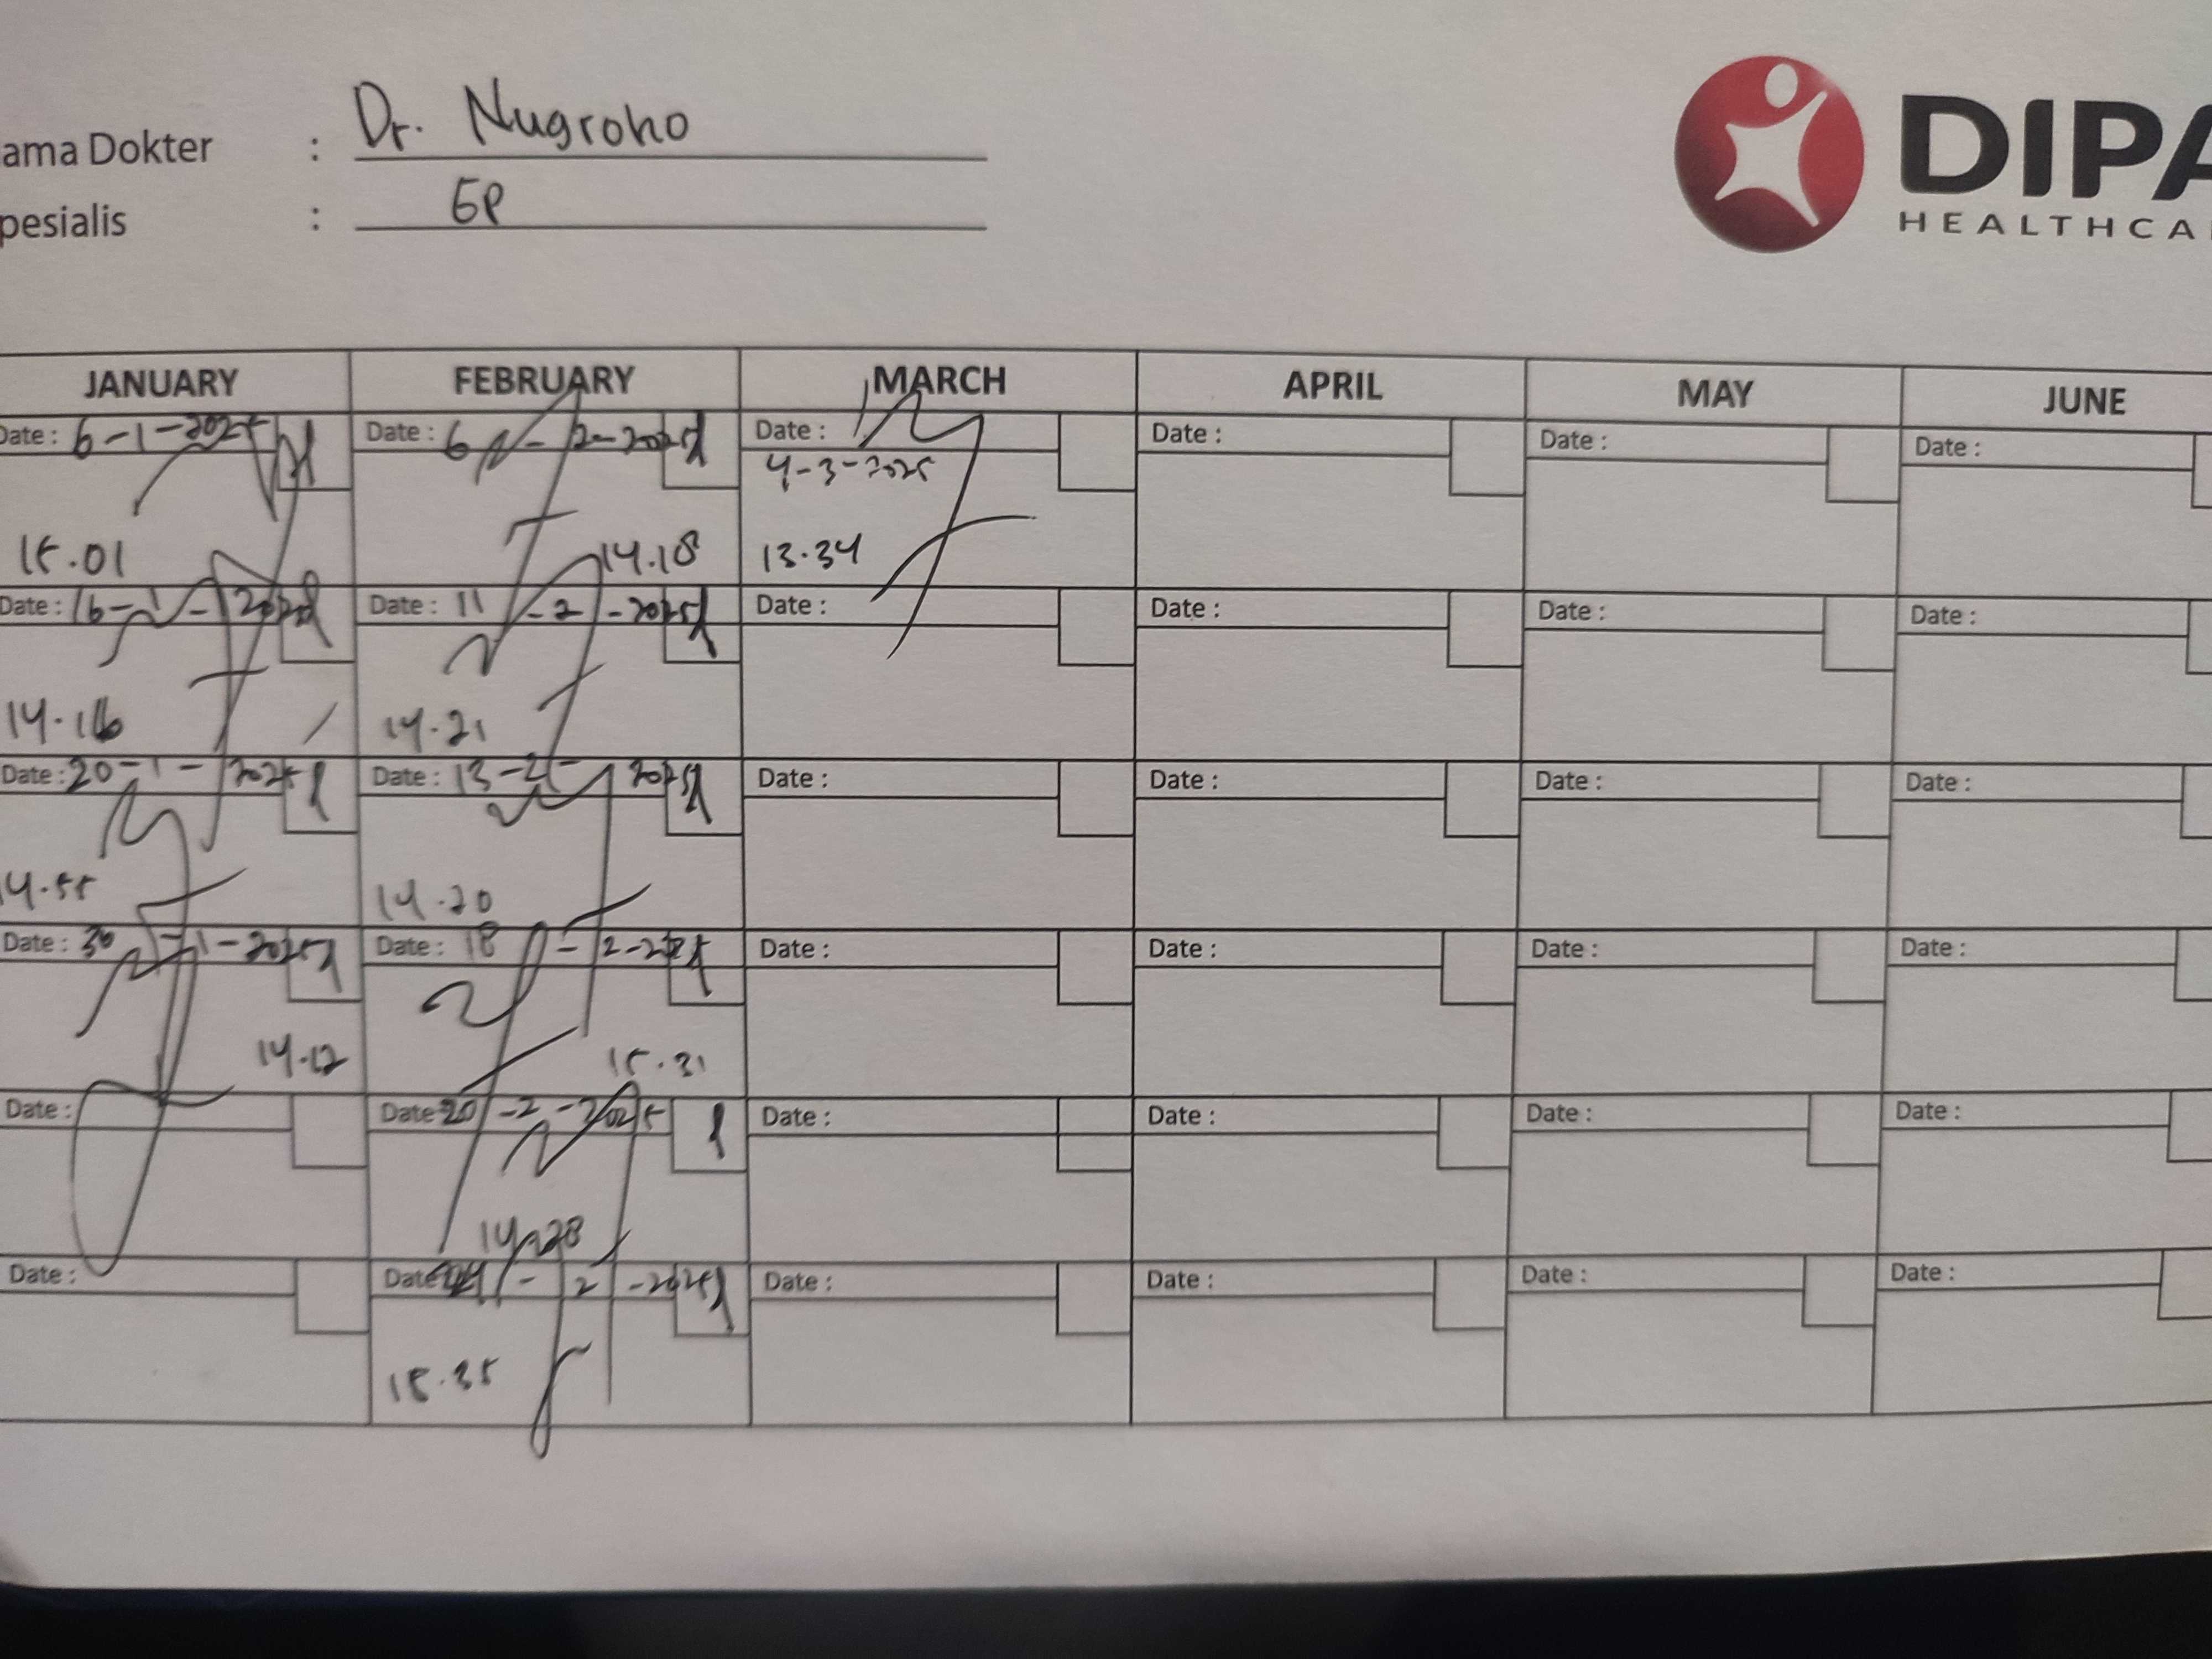 ama Dokter : Dr. Nugroho
pesialis : GP
DIPA
HEALTHCA
JANUARY FEBRUARY MARCH APRIL MAY JUNE
Date : 6-1-2025 Date : 6-2-2025 Date : Date : Date : Date :
4-3-2025
15.01 14.18 13.34
Date : 16-1-2025 Date : 11-2-2025 Date : Date : Date : Date :
14.16 14.21
Date : 20-1-2025 Date : 13-2-2025 Date : Date : Date : Date :
14.55 14.20
Date : 30-1-2025 Date : 18-2-2025 Date : Date : Date : Date :
14.12 15.31
Date : Date 20-2-2025 Date : Date : Date : Date :
14.28
Date : Date -2-2025 Date : Date : Date : Date :
15.35